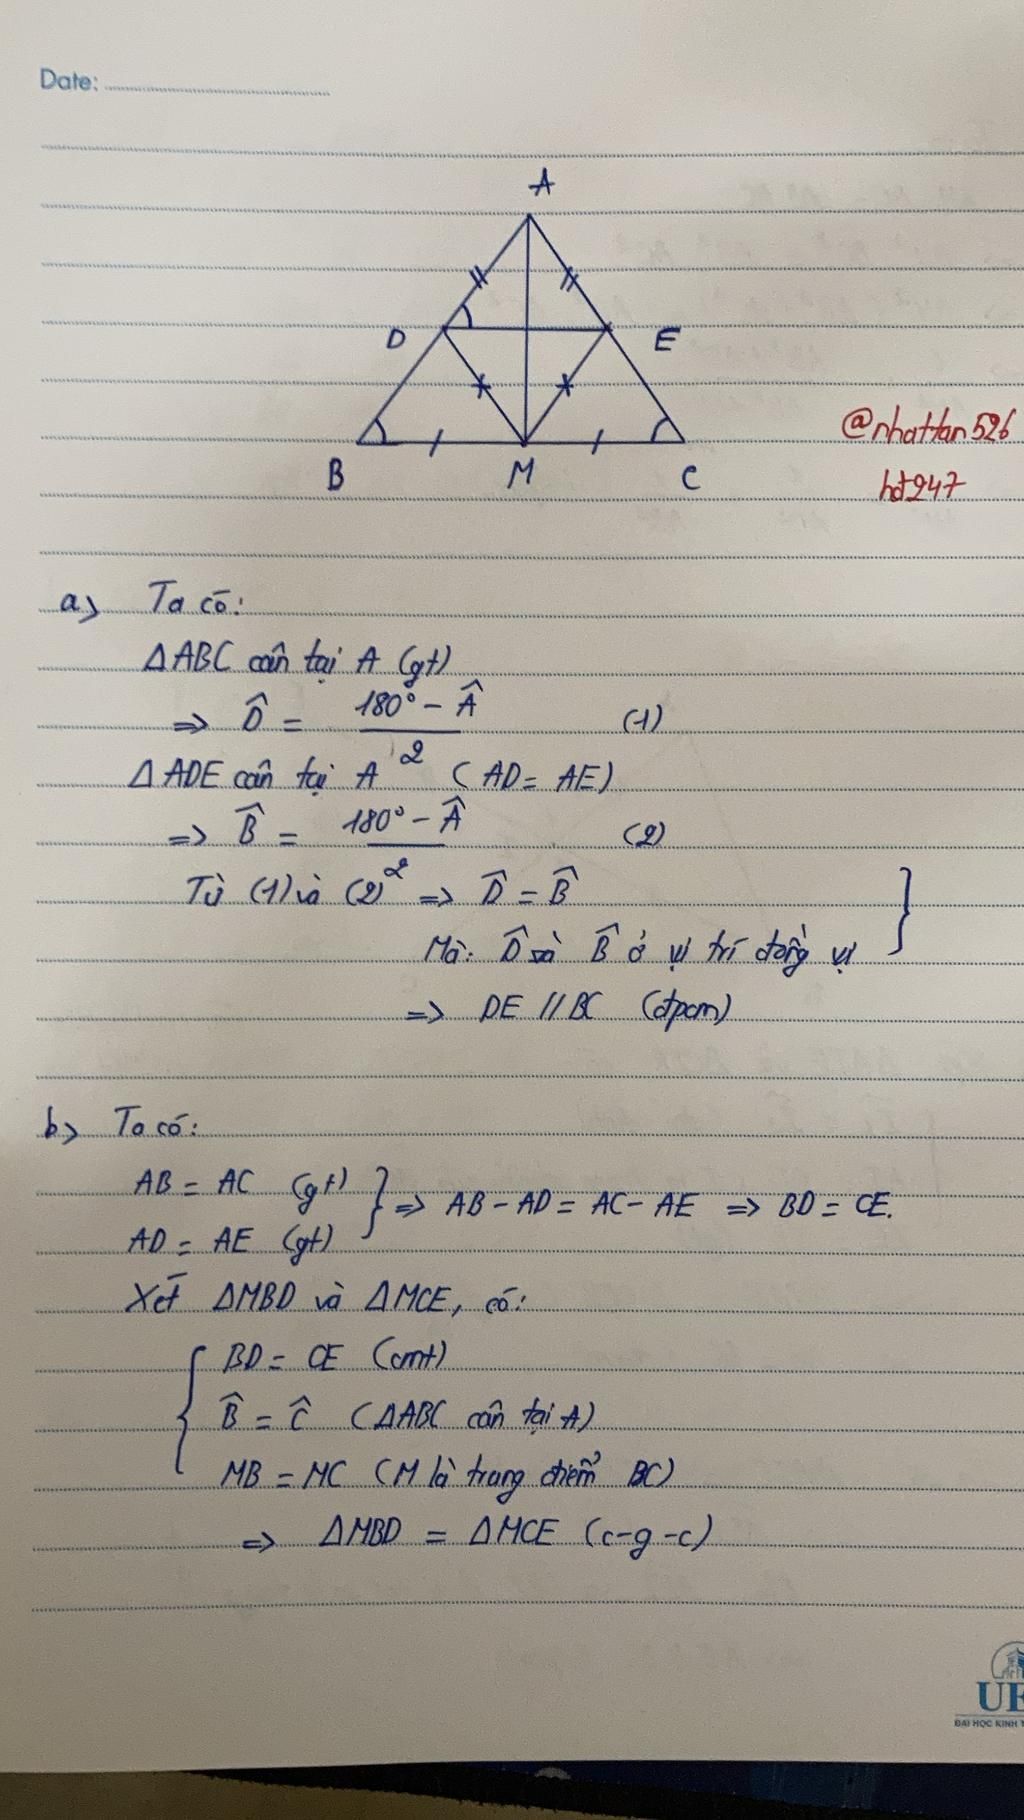 Date:
A
D
E
B
M
C
@nhattan526
hd247
a) Ta có:
ΔABC cân tại A (gt)
=> D̂ = (180° - Â)/2 (1)
ΔADE cân tại A (AD = AE)
=> B̂ = (180° - Â)/2 (2)
Từ (1) và (2) => D̂ = B̂
Mà: D̂ và B̂ ở vị trí đồng vị
=> DE // BC (đpcm)
b) Ta có:
AB = AC (gt)
AD = AE (gt)
} => AB - AD = AC - AE => BD = CE.
Xét ΔMBD và ΔMCE, có:
BD = CE (cmt)
B̂ = Ĉ (ΔABC cân tại A)
MB = MC (M là trung điểm BC)
=> ΔMBD = ΔMCE (c-g-c)
ĐẠI HỌC KINH